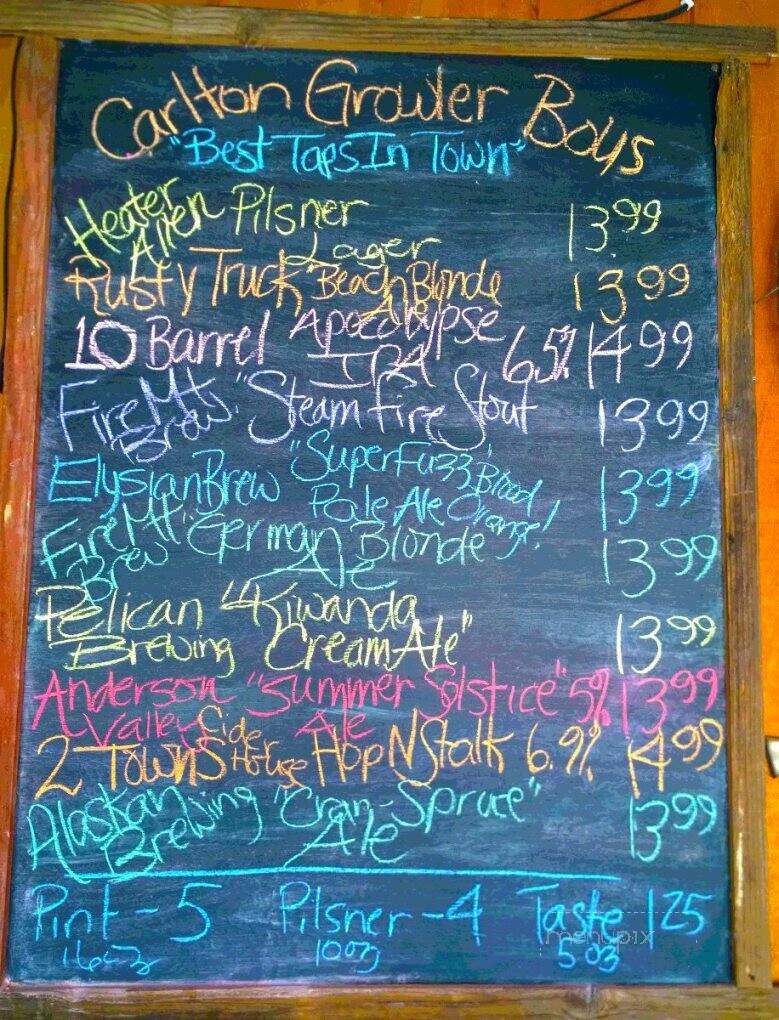 Carlton Growler Boys
"Best Taps In Town"
Heater Allen Pilsner Lager 13.99
Rusty Truck "Beach Blonde Ale 13 99
10 Barrel Apocalypse IPA 6.5% 14 99
Fire Mt. Brew "Steam Fire Stout 13 99
Elysian Brew "SuperFuzz" Blood Orange! Pale Ale 13 99
Fire Mt Brew "German Blonde Ale 13 99
Pelican Brewing "Kiwanda Cream Ale" 13 99
Anderson Valley "Summer Solstice" Ale 5% 13 99
2 Towns Cider House Hop N Stalk 6.9% 14 99
Alaskan Brewing "Cran-Spruce" Ale 13 99
Pint - 5 Pilsner - 4 Taste 1 25
16oz 10oz 5oz
menupix